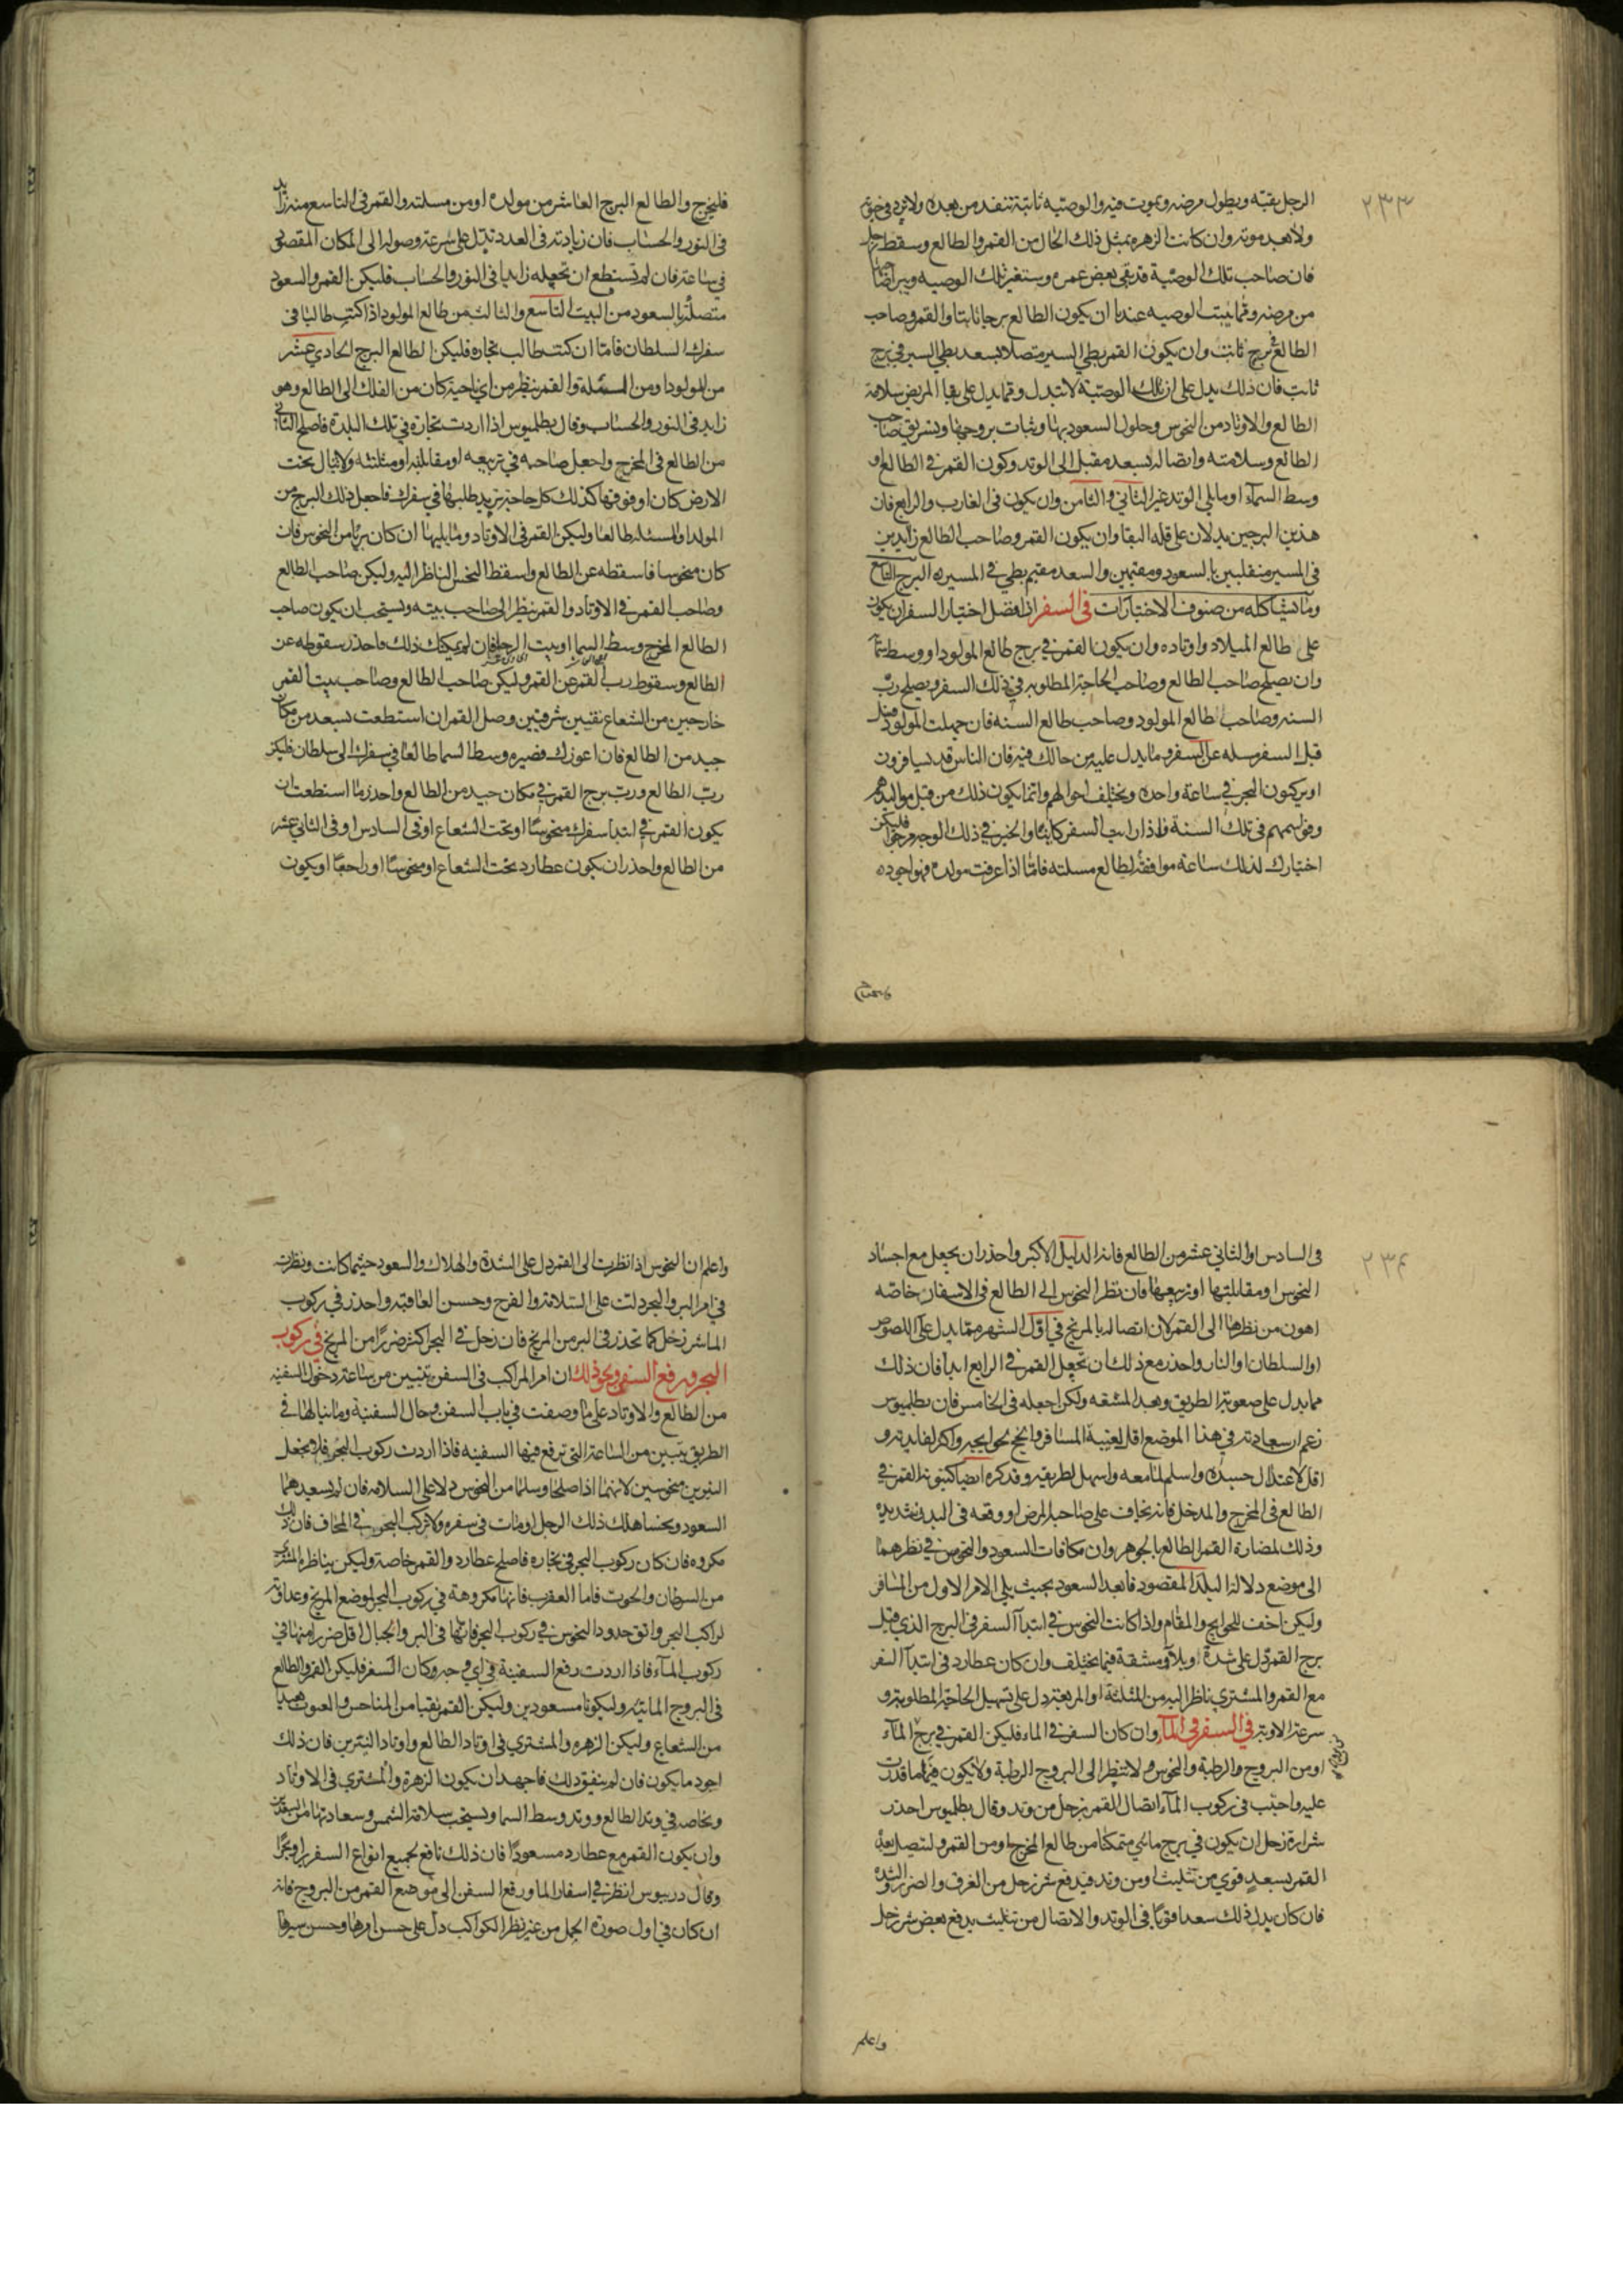 ٢٣٣
الرجل بقيّه ويطول مرضه ويموت فيه والوصيه ثابتة تنفد من بعده ولا يرد في حيوته
ولا بعد موته وان كانت الزهره بمثل ذلك الحال من القمر والطالع وسقط زحل
فان صاحب تلك الوصية قد بقى بعض عمره وستغير تلك الوصيه ويبرا صاحبها
من مرضه ومما يثبت الوصيه عندنا ان يكون الطالع برجا ثابتا والقمر وصاحب
الطالع في برج ثابت وان يكون القمر بطي السير متصلا بسعد بطي السير في برج
ثابت فان ذلك يدل على ان تلك الوصيّة لا تبدل ومما يدل على بقا المريض سلامة
الطالع والاوتاد من النحوس وحلول السعود بها وثبات بروجها وتشريق صاحب
الطالع وسلامته واتصاله بسعد مقبل الى الوتد وكون القمر في الطالع او
وسط السمآء او ما يلي الوتد غير الثاني والثامن وان يكون في الغارب والرابع فان
هذين البرجين يدلان على قله البقا وان يكون القمر وصاحب الطالع زايدين
في المسير منقلبين بالسعود ومقيمين والسعد مقيم بطي في المسير ه البرج التاسع
وما يشاكله من صنوف الاختيارات في السفر ان افضل اختيار السفر ان يكون
على طالع الميلاد واوتاده وان يكون القمر في برج طالع المولود او وسط سمآ
وان يصلح صاحب الطالع وصاحب الحاجة المطلوبه في ذلك السفر ويصلح ربّ
السنه وصاحب طالع المولود وصاحب طالع السنه فان جهلت المولود فسل
قبل السفر مسله عن السفر وما يدل عليه من حالك فيه فان الناس قد يسافرون
او يركبون البحر في ساعة واحده ويختلف احوالهم وانما يكون ذلك من قبل مواليدهم
وقواسمهم في تلك السنة فاذا رايت السفر كاينا والخير في ذلك الوجه مرجوا فليكن
اختيارك لذلك ساعة موافقة لطالع مسلته فامّا اذا عرفت مولده فهو اجوده
فليخرج والطالع البرج العاشر من مولده او من مسلته والقمر في التاسع منه زايد
في النور والحساب فان زيادته في العدد تدل على سرعة وصوله الى المكان المقصود
في ساعته فان لم تستطع ان تجعله زايدا في النور والحساب فليكن القمر والسعود
متصلة بالسعود من البيت التاسع والثالث من طالع المولود اذا كنت طالبا في
سفرك السلطان فامّا ان كنت طالب تجاره فليكن الطالع البرج الحادي عشر
من المولود او من المسئلة والقمر ينظر من اي ناحية كان من الفلك الى الطالع وهو
زايد في النور والحساب وقال بطلميوس اذا اردت تجارة في تلك البلدة فاصلح الثاني
من الطالع في المخرج واجعل صاحبه في تربيعه او مقابلته او مثلثته ولا تبال تحت
الارض كان او فوقها كذلك كل حاجة تريد طلبها في سفرك فاجعل ذلك البرج من
المولد او المسئلة طالعا وليكن القمر في الاوتاد وما يليها ان كان بريّا من النحوس فان
كان منحوسا فاسقطه عن الطالع واسقط النحس الناظر اليه وليكن صاحب الطالع
وصاحب القمر في الاوتاد والقمر ينظر الى صاحب بيته ويستحب ان يكون صاحب
الطالع المخرج وسط السما او بيت الرجا فان لم يمكنك ذلك فاحذر سقوطه عن
الطالع وسقوط رب القمر عن القمر وليكن صاحب الطالع وصاحب بيت القمر
خارجين من الشعاع نقيين شرقيين وصل القمر ان استطعت بسعد من مكان
جيد من الطالع فان اعوزك فصيره وسط السما طالعا في سفرك الى سلطان فليكن
ربّ الطالع وربّ برج القمر في مكان جيد من الطالع واحذر ما استطعت ان
يكون القمر في ابتدا سفرك منحوسًا او تحت الشعاع او في السادس او في الثاني عشر
من الطالع واحذر ان يكون عطارد تحت الشعاع او منحوسًا او راجعا او يكون
٢٣٤
في السادس او الثاني عشر من الطالع فانه الدليل الاكبر واحذر ان يجعل مع اجساد
النحوس او مقابلتها او تربيعها فان نظر النحوس الى الطالع في الاسفار خاصّه
اهون من نظرها الى القمر لان اتصاله بالمريخ في اوّل الشهر مما يدل على اللصوص
او السلطان او النار واحذر مع ذلك ان تجعل القمر في الرابع ابدا فان ذلك
مما يدل على صعوبة الطريق وبعد المشقه ولكن اجعله في الخامس فان بطلميوس
زعم ان سعادته في هذا الموضع اقل لغيبة المسافر وانجح لحوايجه واكثر لفايدته و
اقل لاعتلال جسده واسلم لما معه واسهل لطريقه وقد كره ايضا كينونة القمر في
الطالع في المخرج والمدخل فانه يخاف على صاحبه المرض او وقعه في البدن شديده
وذلك لمضارة القمر الطالع بالجوهر وان مكافات السعود والنحوس في نظرهما
الى موضع دلالة البلد المقصود فابعد السعود بحيث يلي الامر الاول من المسافر
وليكن اخف للحوايج والمقام واذا كانت النحوس في ابتدآ السفر في البرج الذي قبل
برج القمر دل على شدة او بلآء ومشقة فيما يختلف وان كان عطارد في ابتدآ السفر
مع القمر والمشتري ناظرا اليه من المثلثة او المربعة دل على تسهيل الحاجة المطلوبة و
سرعة الاوبة في السفر في المآء وان كان السفر في الماء فليكن القمر في برج المآء
او من البروج والرطبة والنحوس لا تنظر الى البروج الرطبة ولا يكون فيها ما قدرت
عليه واجتب في ركوب المآء اتصال القمر بزحل من وتد وقال بطلميوس احذر
شرارة زحل ان يكون في برج مائي متمكنا من طالع المخرج او من القمر وليتصل بعد
القمر بسعد قوي من تثليث او من وتد فيدفع شر زحل من الغرق والضرر والشده
فان كان بدل ذلك سعدا قويّا في الوتد والاتصال من تثليث يدفع بعض شر زحل
واعلم
واعلم ان النحوس اذا نظرت الى القمر دل على الشدة والهلاك والسعود حيثما كانت ونظرت
في امر البر والبحر دلت على السّلامة والفرح وحسن العاقبه واحذر في ركوب
الماء شر زحل كما تحذر في البر من المريخ فان زحل في البحر اكثر ضررًا من المريخ في ركوب
البحر ورفع السفن ونحو ذلك ان امر المراكب في السفن يتبين من ساعة دخول السفينه
من الطالع والاوتاد على ما وصفت في باب السفن وحال السفينة وما ينالها في
الطريق يتبين من الساعة التي ترفع فيها السفينه فاذا اردت ركوب البحر فلا تجعل
النيرين منحوسين لانهما اذا صلحا وسلما من النحوس دلا على السلامه فان لم يسعدهما
السعود ونحسا هلك ذلك الرجل او مات في سفره ولا تركب البحر في المحاق فان ذلك
مكروه فان كان ركوب البحر في تجاره فاصلح عطارد والقمر خاصة وليكن يناظره المشتري
من السرطان والحوت فاما العقرب فانها مكروهة في ركوب البحر لموضع المريخ وعداوته
لراكب البحر واتق حدود النحوس في ركوب البحر فانها في البر والجبال اقل ضررا منها في
ركوب المآء فاذا اردت رفع السفينة في اي وجه وكان السفر فليكن القمر والطالع
في البروج المائيّه وليكونا مسعودين وليكن القمر نقيا من المناحس والعيوب بعيدا
من الشعاع وليكن الزهره والمشتري في اوتاد الطالع واوتاد النيّرين فان ذلك
اجود ما يكون فان لم يتفق ذلك فاجهد ان يكون الزهرة والمشتري في الاوتاد
وبخاصه في وتد الطالع ووتد وسط السما ويستحب سلامة الشمس وسعادتها من السعدين
وان يكون القمر مع عطارد مسعودًا فان ذلك نافع لجميع انواع السفر برا وبحرًا
وقال دريوس انظر في اسفار الما ورفع السفن الى موضع القمر من البروج فانه
ان كان في اول صورة الحمل من غير نظر الكواكب دلّ على حسن امرها وحسن سيرها